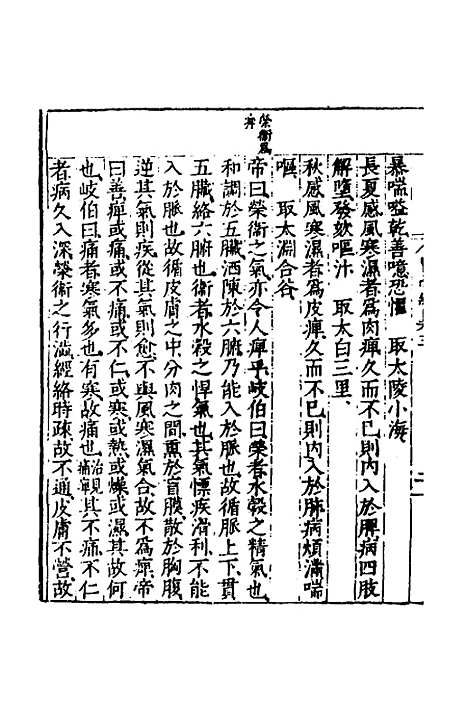 暴喘嗌乾善噫恐懼　取太陵小海
長夏感風寒濕者爲肉痺久而不已則内入於脾病四肢
解墮發欬嘔汁　取太白三里
秋感風寒濕者爲皮痺久而不已則内入於肺病煩滿喘
嘔　取太淵合谷
榮衛爲
痺
帝曰榮衛之氣亦令人痺乎岐伯曰榮者水穀之精氣也
和調於五臟洒陳於六腑乃能入於脉也故循脉上下貫
五臟絡六腑也衛者水穀之悍氣也其氣慓疾滑利不能
入於脉也故循皮膚之中分肉之間熏於肓膜散於胸腹
逆其氣則疾從其氣則愈不與風寒濕氣合故不爲痺帝
曰善痺或痛或不痛或不仁或寒或熱或燥或濕其故何
也岐伯曰痛者寒氣多也有寒故痛也其不痛不仁
者病久入深榮衛之行濇經絡時疎故不通皮膚不營故